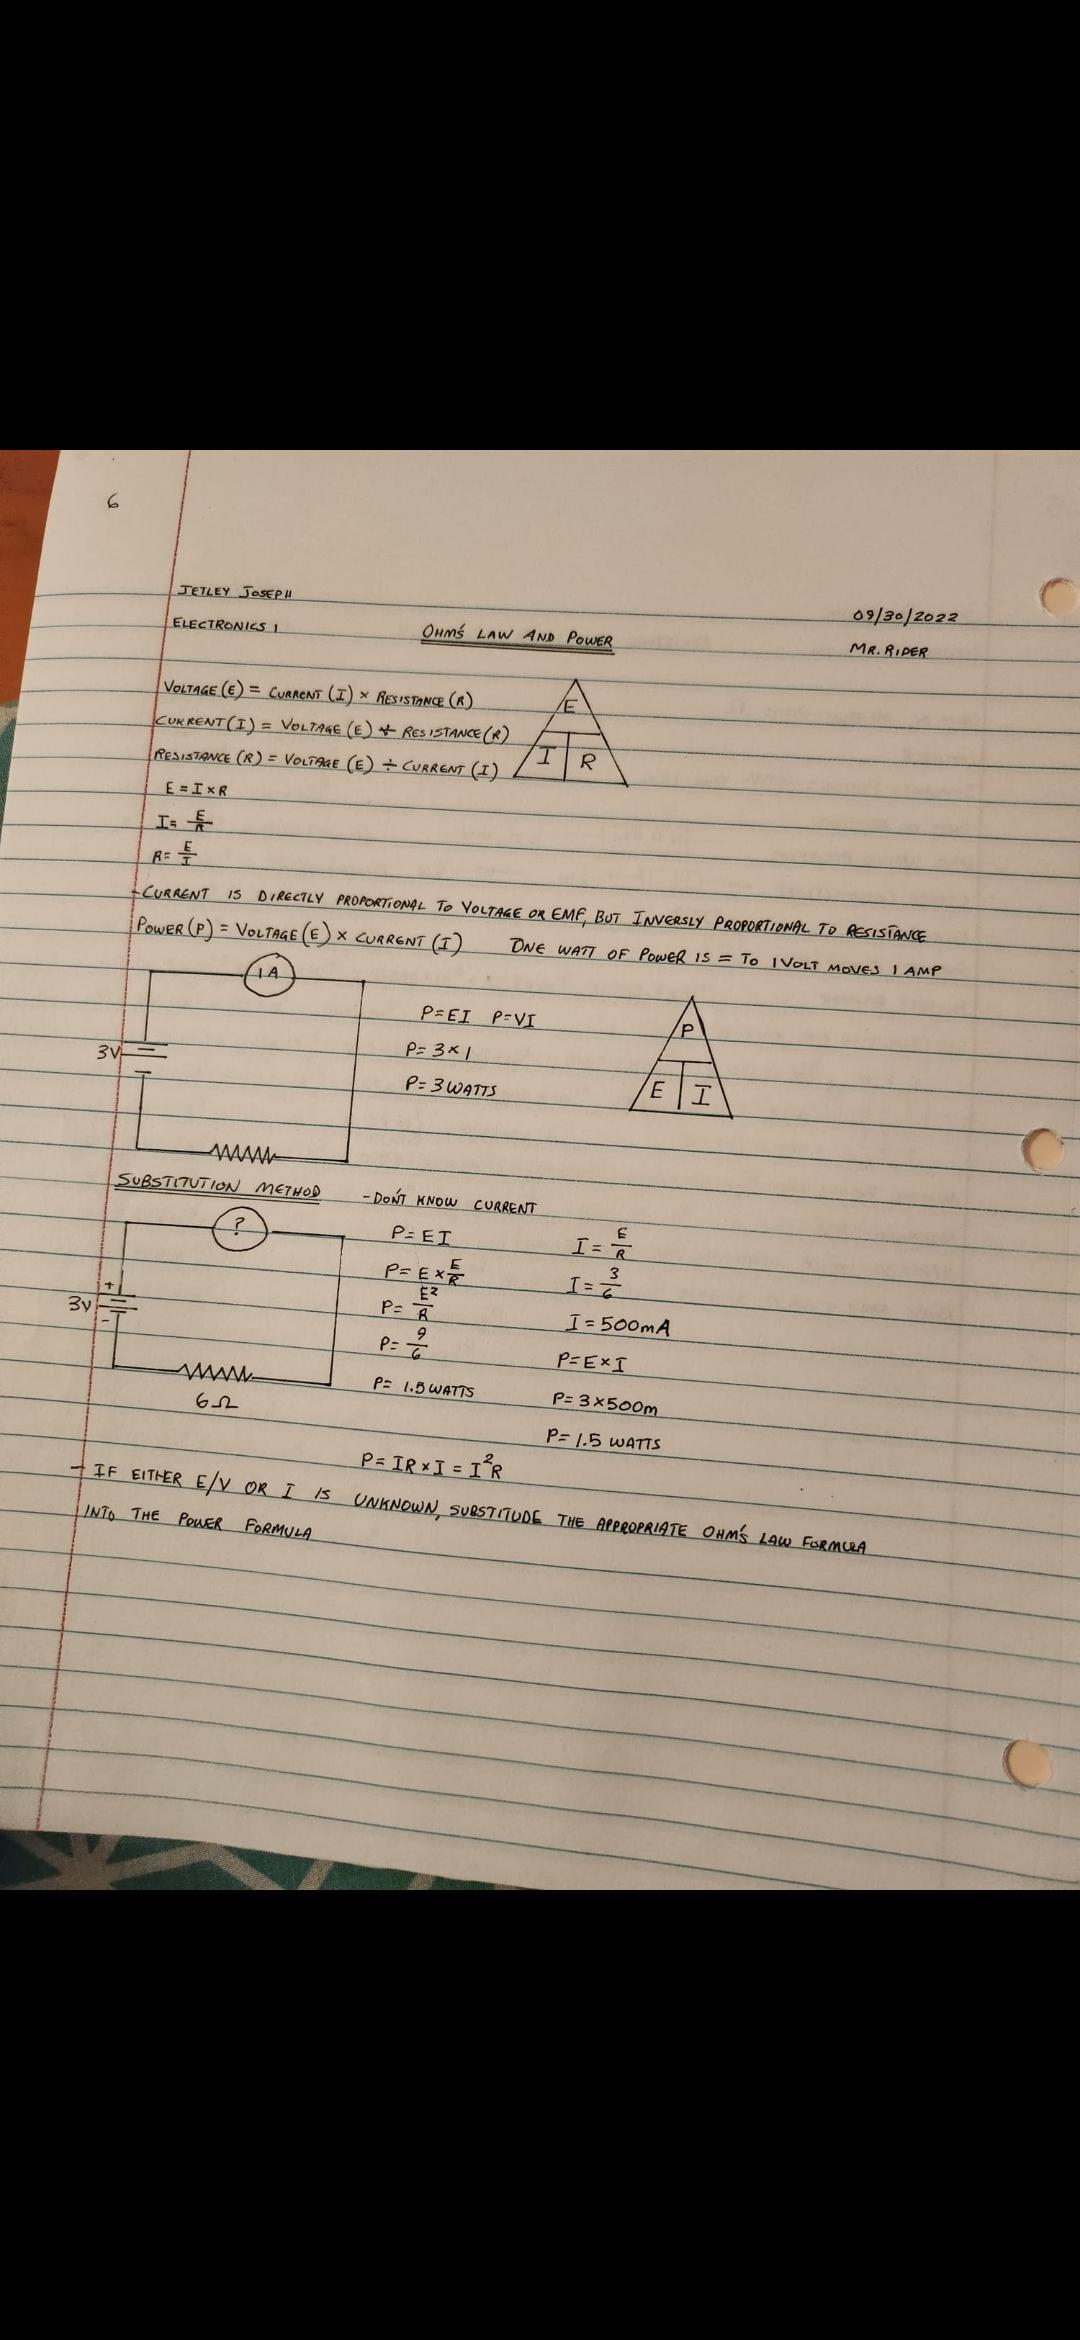 6
JETLEY JOSEPH
09/30/2022
ELECTRONICS 1
OHM'S LAW AND POWER
MR. RIDER
VOLTAGE (E) = CURRENT (I) × RESISTANCE (R)
CURRENT (I) = VOLTAGE (E) ÷ RESISTANCE (R)
RESISTANCE (R) = VOLTAGE (E) ÷ CURRENT (I)
E
I R
E = I × R
I = E/R
R = E/I
- CURRENT IS DIRECTLY PROPORTIONAL TO VOLTAGE OR EMF, BUT INVERSLY PROPORTIONAL TO RESISTANCE
POWER (P) = VOLTAGE (E) × CURRENT (I) ONE WATT OF POWER IS = TO 1 VOLT MOVES 1 AMP
1A
3V
P=EI P=VI
P= 3×1
P= 3 WATTS
P
E I
SUBSTITUTION METHOD - DON'T KNOW CURRENT
?
+
3V
-
6Ω
P= EI
P= E × E/R
P= E²/R
P= 9/6
P= 1.5 WATTS
I = E/R
I = 3/6
I = 500mA
P= E×I
P= 3×500m
P= 1.5 WATTS
P= IR×I = I²R
- IF EITHER E/V OR I IS UNKNOWN, SUBSTITUDE THE APPROPRIATE OHM'S LAW FORMULA
INTO THE POWER FORMULA